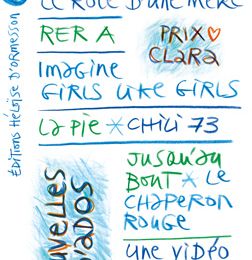 LE RÔLE D'UNE MÈRE
RER A
PRIX
CLARA
IMAGINE
GIRLS LIKE GIRLS
LA PIE * CHILI 73
JUSQU'AU
BOUT * LE
CHAPERON
ROUGE
UNE VIDÉO
UVELLES
'ADOS
ÉDITIONS HÉLOÏSE D'ORMESSON